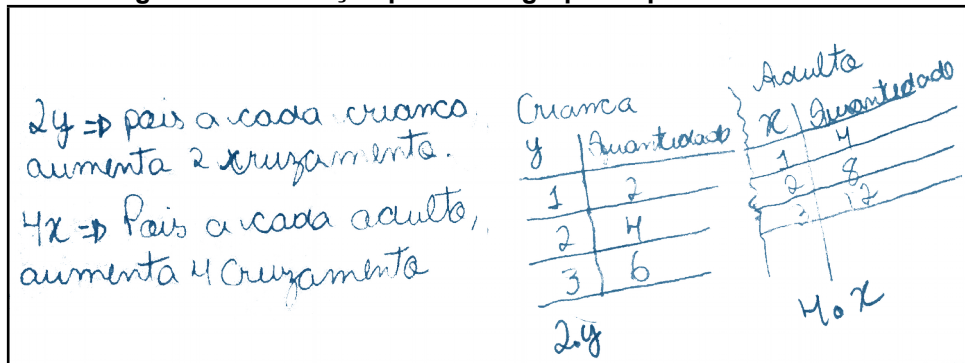 2y => pois a cada crianca
aumenta 2 cruzamento.
4x => Pois a cada adulto,
aumenta 4 Cruzamento
Crianca
y | Quantidade
1 | 2
2 | 4
3 | 6
2.y
Adulto
x | Quantidade
1 | 4
2 | 8
3 | 12
4.x